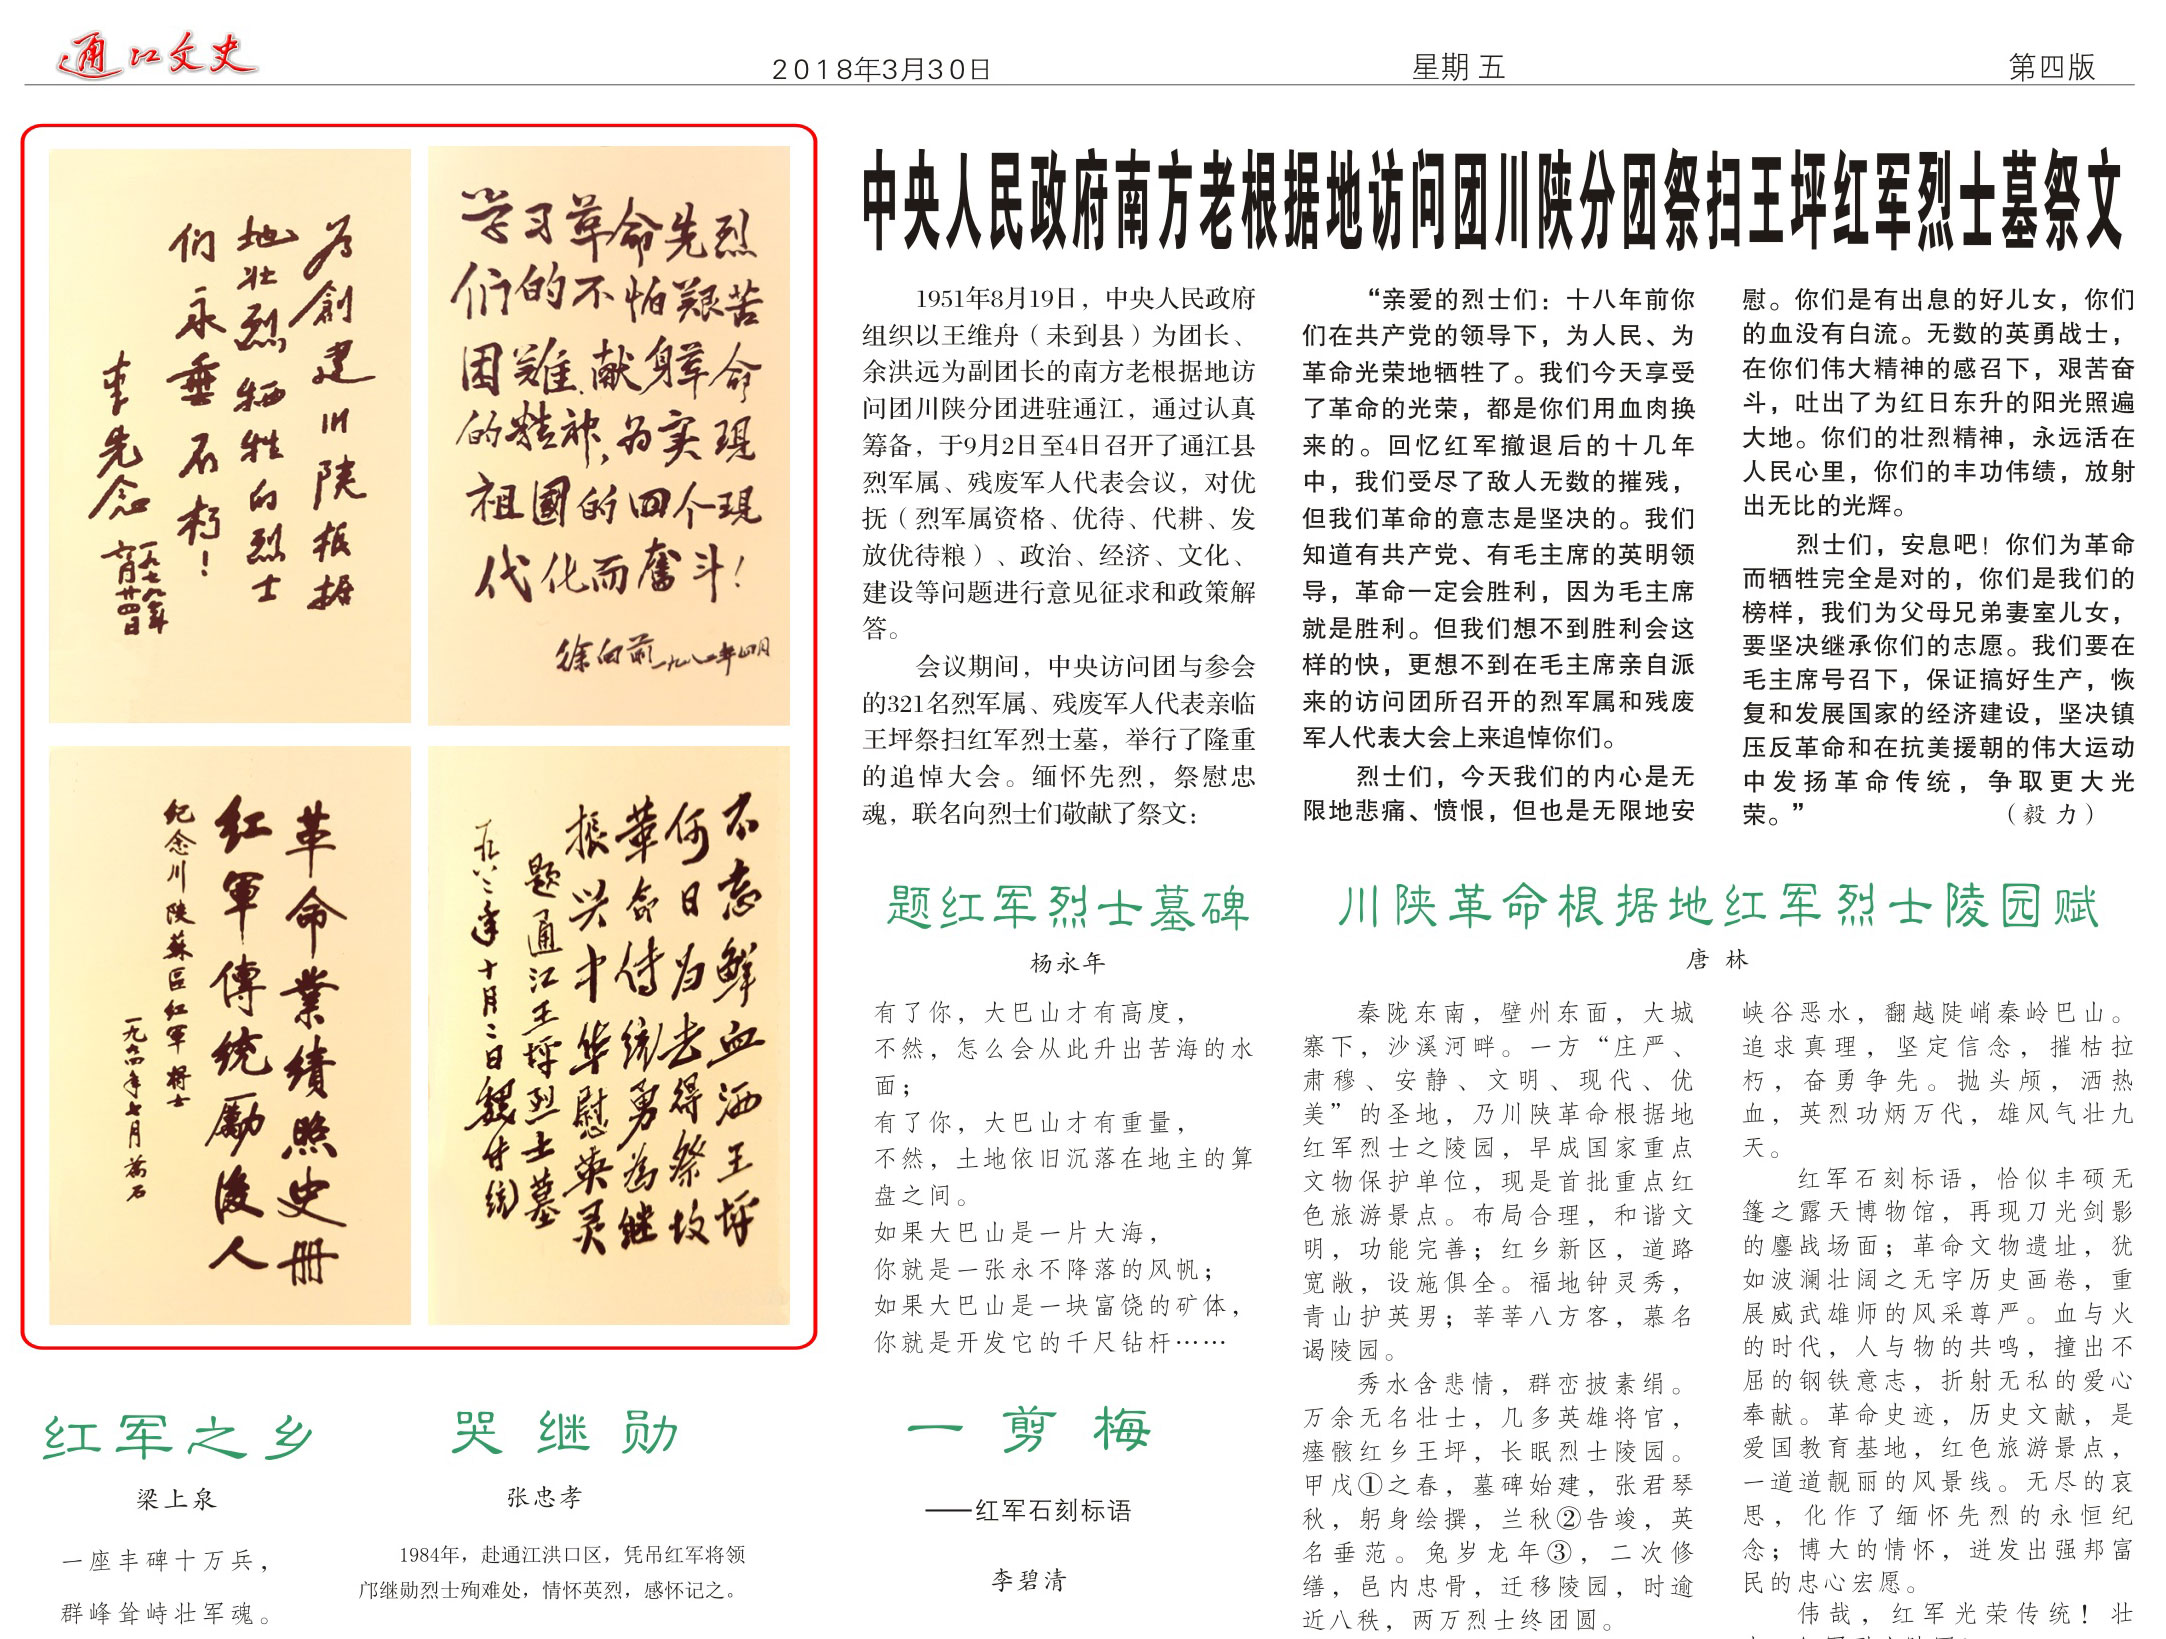 通江文史
2018年3月30日
星期五
第四版
为創建川陕根据
地壮烈牺牲的烈士
们永垂不朽！
李先念
一九七九年
六月廿四日
学习革命先烈
们的不怕艰苦
困难、献身革命
的精神,为实现
祖國的四个現
代化而奮斗！
徐向前 一九八二年四月
革命業績照史冊
红軍傳統勵後人
纪念川陕蘇區红軍将士
一九九四年七月
不忘鲜血洒王坪
何日为去得祭坟
革命传统勇為继
振兴中华慰英灵
题通江王坪烈士墓
一九八二年十月二日魏传统
中央人民政府南方老根据地访问团川陕分团祭扫王坪红军烈士墓祭文
1951年8月19日，中央人民政府
组织以王维舟（未到县）为团长、
余洪远为副团长的南方老根据地访
问团川陕分团进驻通江，通过认真
筹备，于9月2日至4日召开了通江县
烈军属、残废军人代表会议，对优
抚（烈军属资格、优待、代耕、发
放优待粮）、政治、经济、文化、
建设等问题进行意见征求和政策解
答。
会议期间，中央访问团与参会
的321名烈军属、残废军人代表亲临
王坪祭扫红军烈士墓，举行了隆重
的追悼大会。缅怀先烈，祭慰忠
魂，联名向烈士们敬献了祭文：
“亲爱的烈士们：十八年前你
们在共产党的领导下，为人民、为
革命光荣地牺牲了。我们今天享受
了革命的光荣，都是你们用血肉换
来的。回忆红军撤退后的十几年
中，我们受尽了敌人无数的摧残，
但我们革命的意志是坚决的。我们
知道有共产党、有毛主席的英明领
导，革命一定会胜利，因为毛主席
就是胜利。但我们想不到胜利会这
样的快，更想不到在毛主席亲自派
来的访问团所召开的烈军属和残废
军人代表大会上来追悼你们。
烈士们，今天我们的内心是无
限地悲痛、愤恨，但也是无限地安
慰。你们是有出息的好儿女，你们
的血没有白流。无数的英勇战士，
在你们伟大精神的感召下，艰苦奋
斗，吐出了为红日东升的阳光照遍
大地。你们的壮烈精神，永远活在
人民心里，你们的丰功伟绩，放射
出无比的光辉。
烈士们，安息吧！你们为革命
而牺牲完全是对的，你们是我们的
榜样，我们为父母兄弟妻室儿女，
要坚决继承你们的志愿。我们要在
毛主席号召下，保证搞好生产，恢
复和发展国家的经济建设，坚决镇
压反革命和在抗美援朝的伟大运动
中发扬革命传统，争取更大光
荣。”　（毅 力）
题红军烈士墓碑
杨永年
有了你，大巴山才有高度，
不然，怎么会从此升出苦海的水
面；
有了你，大巴山才有重量，
不然，土地依旧沉落在地主的算
盘之间。
如果大巴山是一片大海，
你就是一张永不降落的风帆；
如果大巴山是一块富饶的矿体，
你就是开发它的千尺钻杆……
川陕革命根据地红军烈士陵园赋
唐 林
秦陇东南，壁州东面，大城
寨下，沙溪河畔。一方“庄严、
肃穆、安静、文明、现代、优
美”的圣地，乃川陕革命根据地
红军烈士之陵园，早成国家重点
文物保护单位，现是首批重点红
色旅游景点。布局合理，和谐文
明，功能完善；红乡新区，道路
宽敞，设施俱全。福地钟灵秀，
青山护英男；莘莘八方客，慕名
谒陵园。
秀水含悲情，群峦披素绢。
万余无名壮士，几多英雄将官，
瘗骸红乡王坪，长眠烈士陵园。
甲戌①之春，墓碑始建，张君琴
秋，躬身绘撰，兰秋②告竣，英
名垂范。兔岁龙年③，二次修
缮，邑内忠骨，迁移陵园，时逾
近八秩，两万烈士终团圆。
峡谷恶水，翻越陡峭秦岭巴山。
追求真理，坚定信念，摧枯拉
朽，奋勇争先。抛头颅，洒热
血，英烈功炳万代，雄风气壮九
天。
红军石刻标语，恰似丰硕无
篷之露天博物馆，再现刀光剑影
的鏖战场面；革命文物遗址，犹
如波澜壮阔之无字历史画卷，重
展威武雄师的风采尊严。血与火
的时代，人与物的共鸣，撞出不
屈的钢铁意志，折射无私的爱心
奉献。革命史迹，历史文献，是
爱国教育基地，红色旅游景点，
一道道靓丽的风景线。无尽的哀
思，化作了缅怀先烈的永恒纪
念；博大的情怀，迸发出强邦富
民的忠心宏愿。
伟哉，红军光荣传统！壮
红军之乡
梁上泉
一座丰碑十万兵，
群峰耸峙壮军魂。
哭继勋
张忠孝
1984年，赴通江洪口区，凭吊红军将领
邝继勋烈士殉难处，情怀英烈，感怀记之。
一剪梅
——红军石刻标语
李碧清